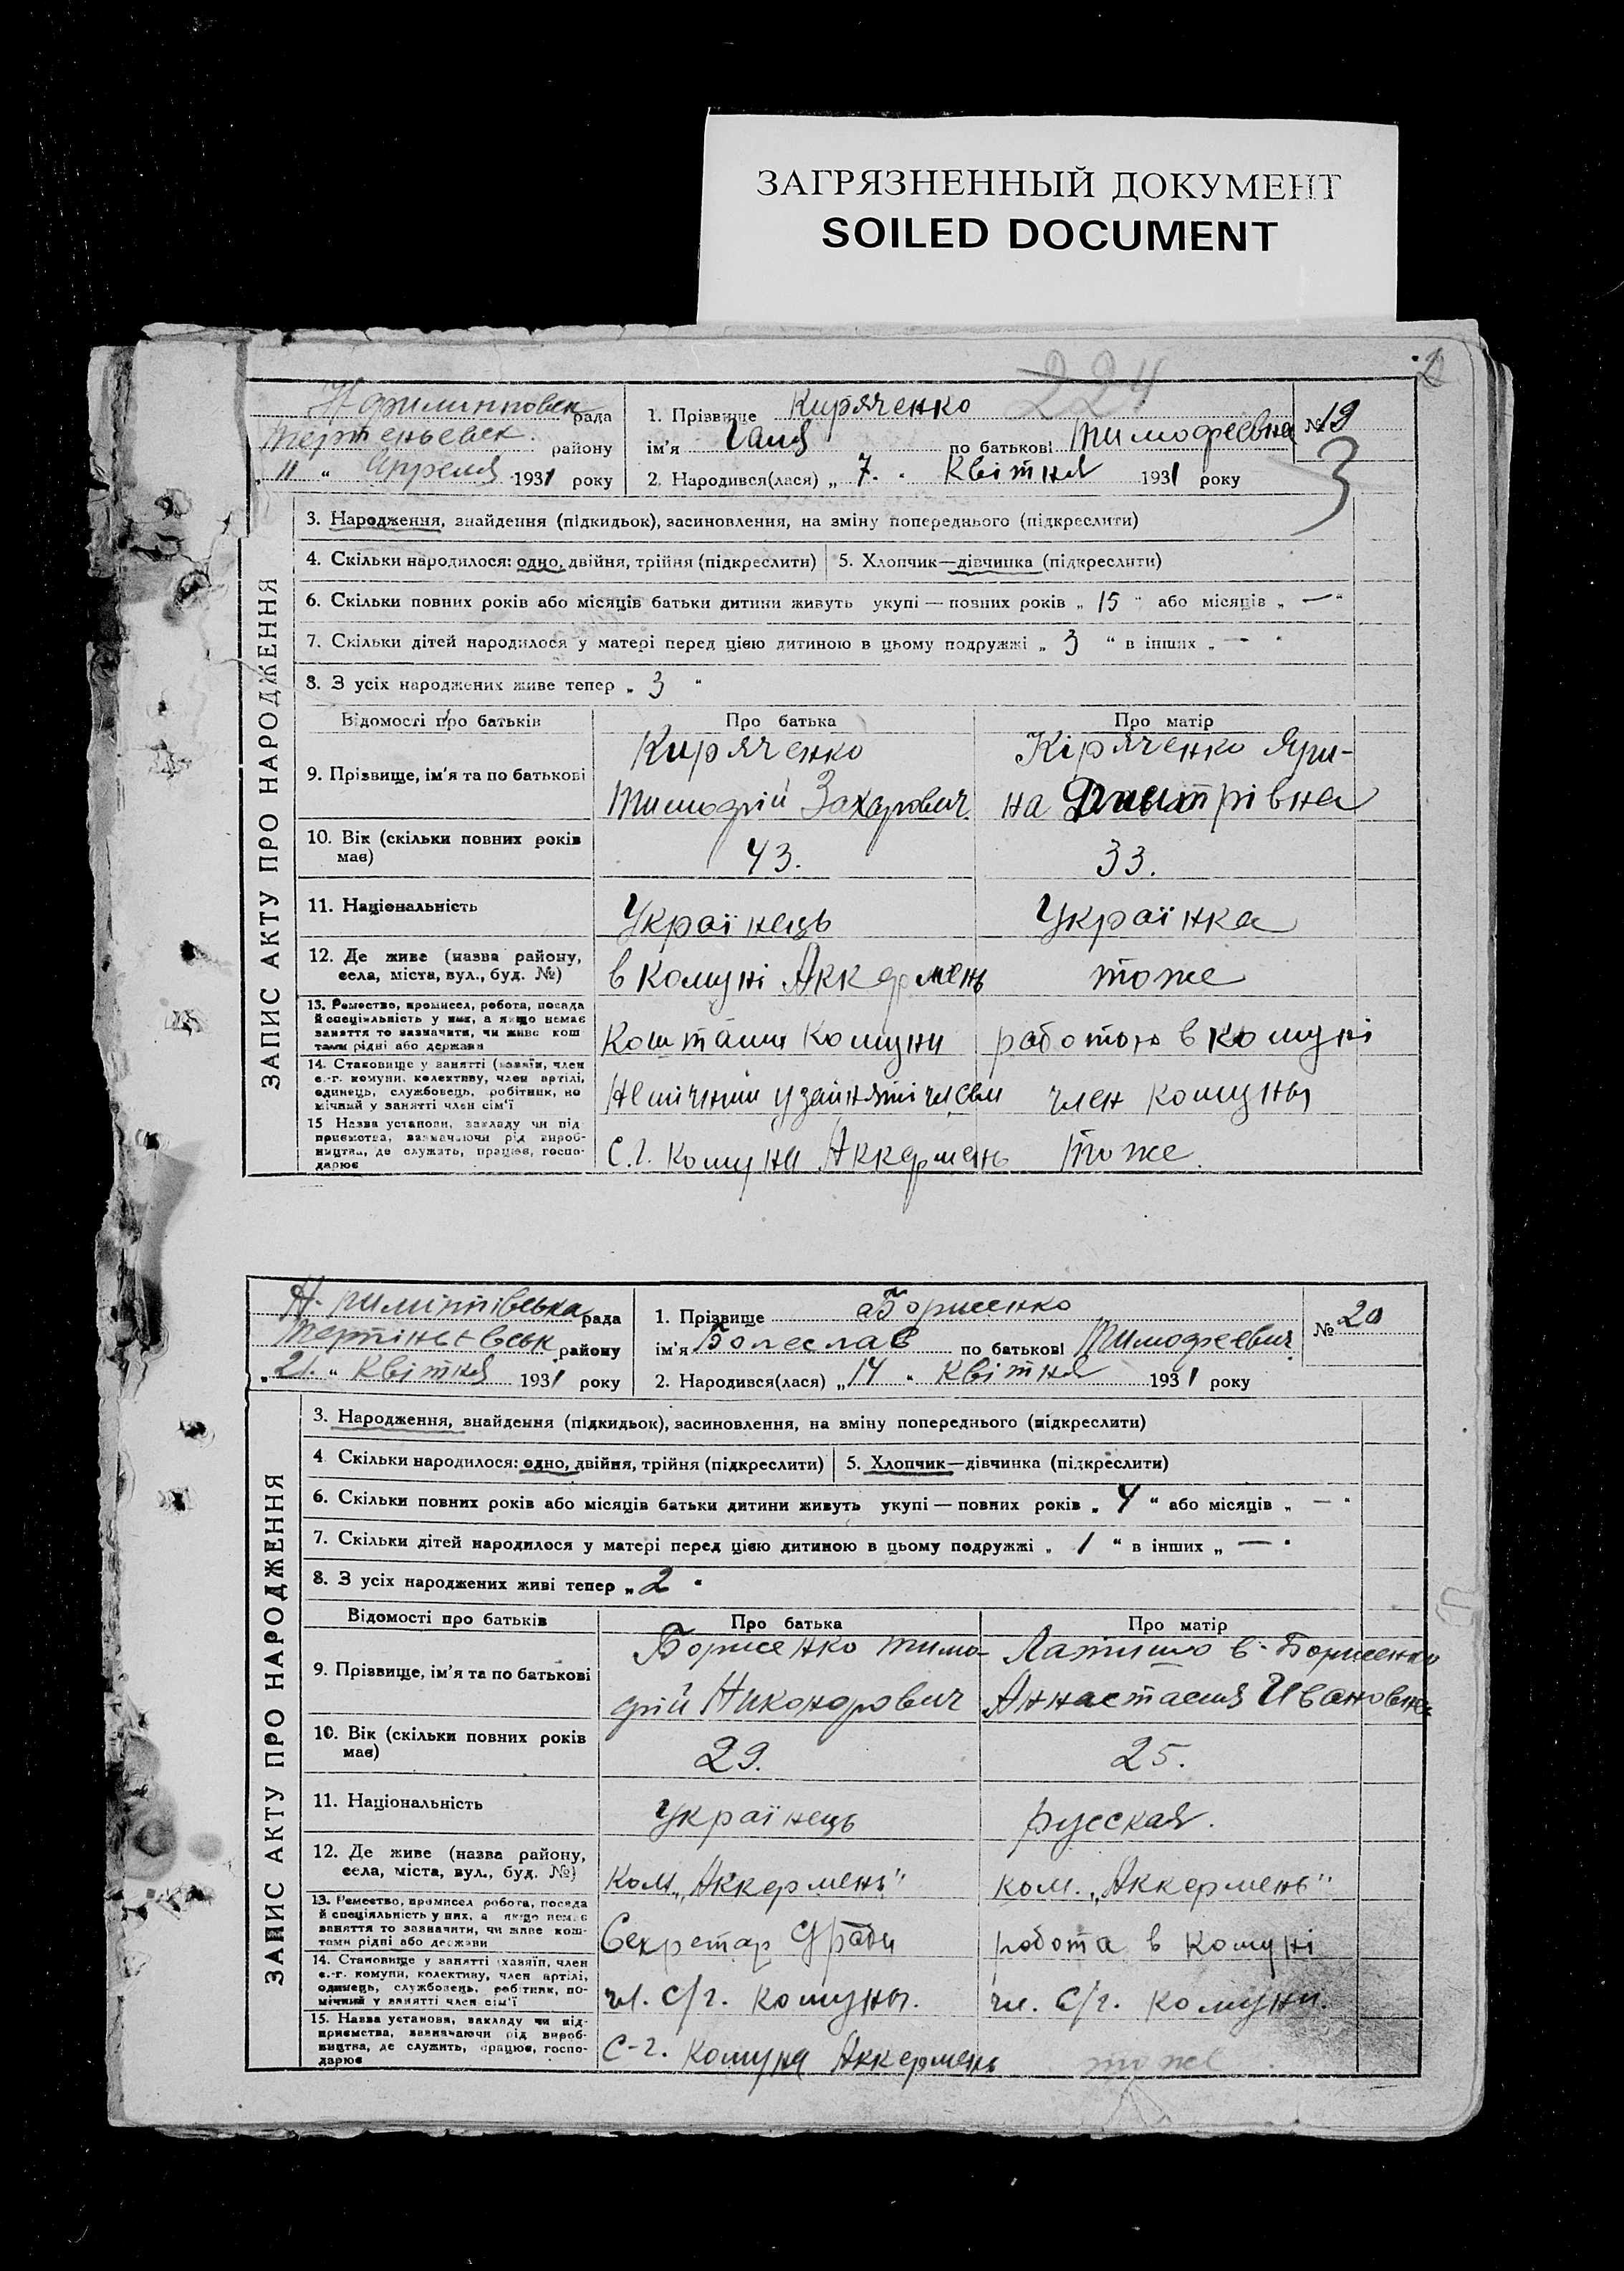 ЗАГРЯЗНЕННЫЙ ДОКУМЕНТ
SOILED DOCUMENT
224
2
рада
району
„11“ Апреля 1931 року
1. Прізвище Киряченко
ім'я Галя по батькові Тимофеевна
2. Народився(лася) „7.“ Квітня 1931 року
№ 19
3
ЗАПИС АКТУ ПРО НАРОДЖЕННЯ
3. Народження, знайдення (підкидьок), засиновлення, на зміну попереднього (підкреслити)
4. Скільки народилося: одно, двійня, трійня (підкреслити) 5. Хлопчик—дівчинка (підкреслити)
6. Скільки повних років або місяців батьки дитини живуть укупі — повних років „ 15 “ або місяців „ — “
7. Скільки дітей народилося у матері перед цією дитиною в цьому подружжі „ 3 “ в інших „ — “
8. З усіх народжених живе тепер „ 3 “
Відомості про батьків Про батька Про матір
9. Прізвище, ім'я та по батькові
Киряченко Кіряченко Яри-
Тимофій Захарович на Дмитрівна
10. Вік (скільки повних років має) 43. 33.
11. Національність Українець Українка
12. Де живе (назва району, села, міста, вул., буд. №) в комуні Аккермень тоже
13. Ремество, промисел, робота, посада
й спеціяльність у них, а якщо немає
заняття то зазначити, чи живе кош-
тами рідні або держави
Коштами комуни работыя в комуні
14. Становище у занятті (хазяїн, член
с.-г. комуни, колективу, член артілі,
одинець, службовець, робітник, по
мічний у занятті член сім'ї
член комуны
15 Назва установи, закладу чи під
приємства, зазначаючи рід вироб-
ництва, де служить, працює, госпо-
дарює
С.г. комуна Аккермень тоже
рада
району
„21.“ Квітня 1931 року
1. Прізвище Борисенко
ім'я Болеслав по батькові Тимофеевич
2. Народився(лася) „14“ Квітня 1931 року
№ 20
ЗАПИС АКТУ ПРО НАРОДЖЕННЯ
3. Народження, знайдення (підкидьок), засиновлення, на зміну попереднього (підкреслити)
4 Скільки народилося: одно, двійня, трійня (підкреслити) 5. Хлопчик—дівчинка (підкреслити)
6. Скільки повних років або місяців батьки дитини живуть укупі — повних років „ 4 “ або місяців „ — “
7. Скільки дітей народилося у матері перед цією дитиною в цьому подружжі „ 1 “ в інших „ — “
8. З усіх народжених живі тепер „ 2 “
Відомості про батьків Про батька Про матір
9. Прізвище, ім'я та по батькові
Борисенко Тимо- в- Борисенко
фій Никонорович Аннастасия Ивановна
10. Вік (скільки повних років має) 29. 25.
11. Національність Українець русская.
12. Де живе (назва району, села, міста, вул., буд. №) Ком. „Аккермень" ком. „Аккермень"
13. Ремество, промисел робота, посада
й спеціяльність у них, а якщо немає
заняття то зазначити, чи живе кош-
тами рідні або держави
Секретар С/ради робота в комуні
14. Становище у занятті (хазяїн, член
с.-г. комуни, колективу, член артілі,
одинець, службовець, робітник, по-
мічний у занятті член сім'ї
чл. С/г. комуны. чл. С/г. комуни.
15. Назва установи, закладу чи під-
приємства, зазначаючи рід вироб-
ництва, де служить, працює, госпо-
дарює
С-г. комуна Аккермень тоже